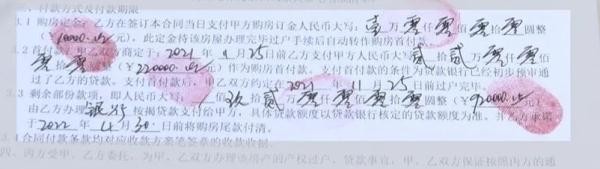 三、付款方式及付款期限
3.1 购房定金:乙方在签订本合同当日支付甲方购房订金人民币大写:壹万零仟零佰零拾零圆整
(¥10000.00元),此定金待该房屋办理完毕过户手续后自动转作购房首付款
3.2 首付款:甲乙双方商定于2021年11月25日前乙方支付甲方人民币大写:贰拾贰万零仟零佰
零拾零圆整(¥220000.00元)作为购房首付款。支付首付款的条件为贷款银行已经初步预审通
过了乙方的贷款。支付首付款后,甲乙双方约定于2021年11月25日前过户完毕。
3.3 剩余部份款项,即人民币大写:玖拾贰万零仟零佰零拾零圆整(¥920000.00元)
由乙方办理银行按揭贷款支付给甲方,具体贷款额度以贷款银行核定的贷款额度为准。并乙方承诺
于2022年4月30日前将购房尾款付清。
3.4 合同付款条款均对应收款方亲笔签章的收款收据。
四、丙方受甲、乙方委托,为甲、乙双方办理该房产的产权过户、贷款事宜,甲、乙双方保证按照丙方的通